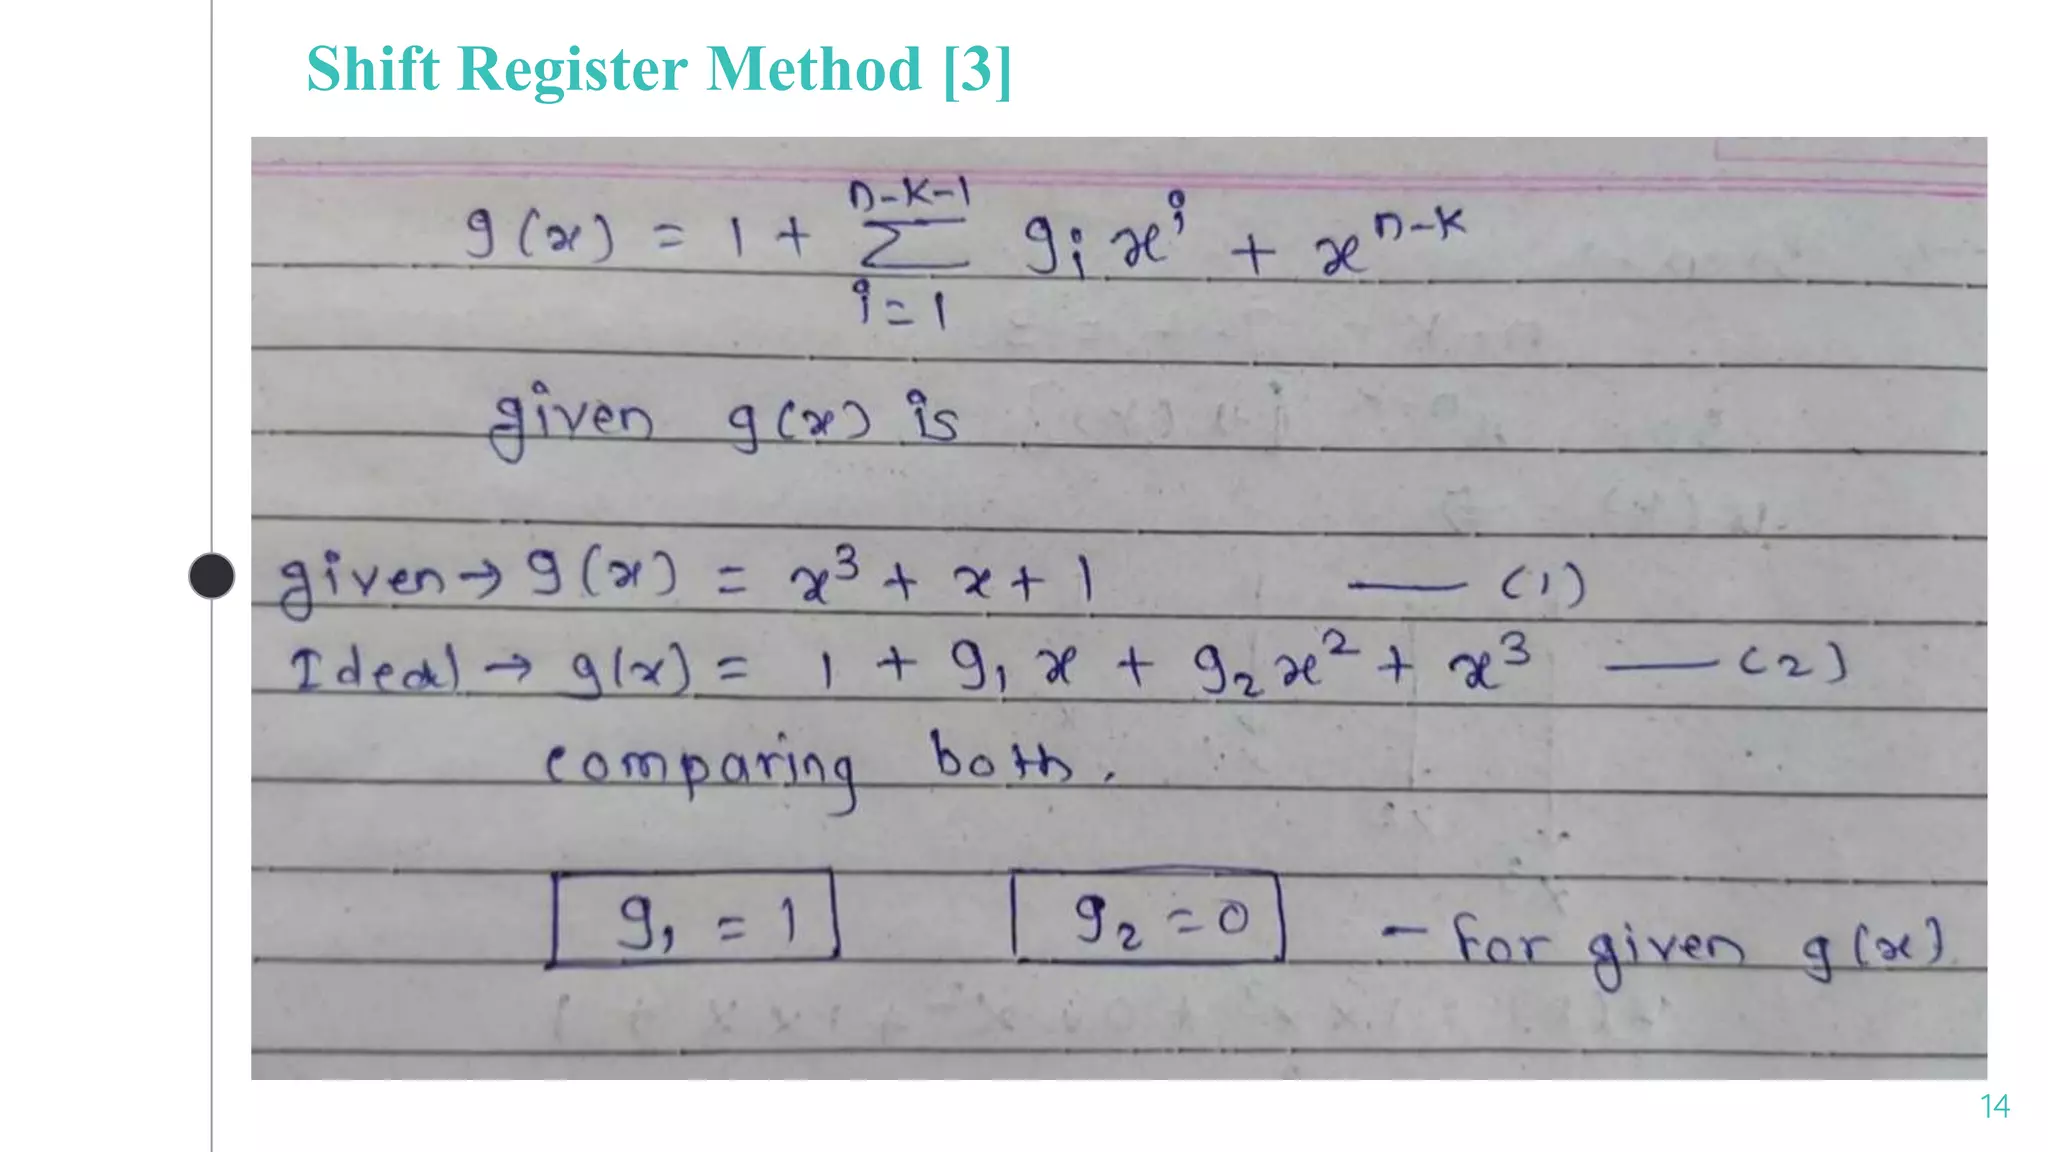 Shift Register Method [3]
n-k-1
g(x) = 1 + Σ gᵢ xⁱ + xⁿ⁻ᵏ
i=1
given g(x) is
given → g(x) = x³ + x + 1 — (1)
Ideal → g(x) = 1 + g₁ x + g₂ x² + x³ — (2)
comparing both.
g₁ = 1 g₂ = 0 - For given g(x)
14